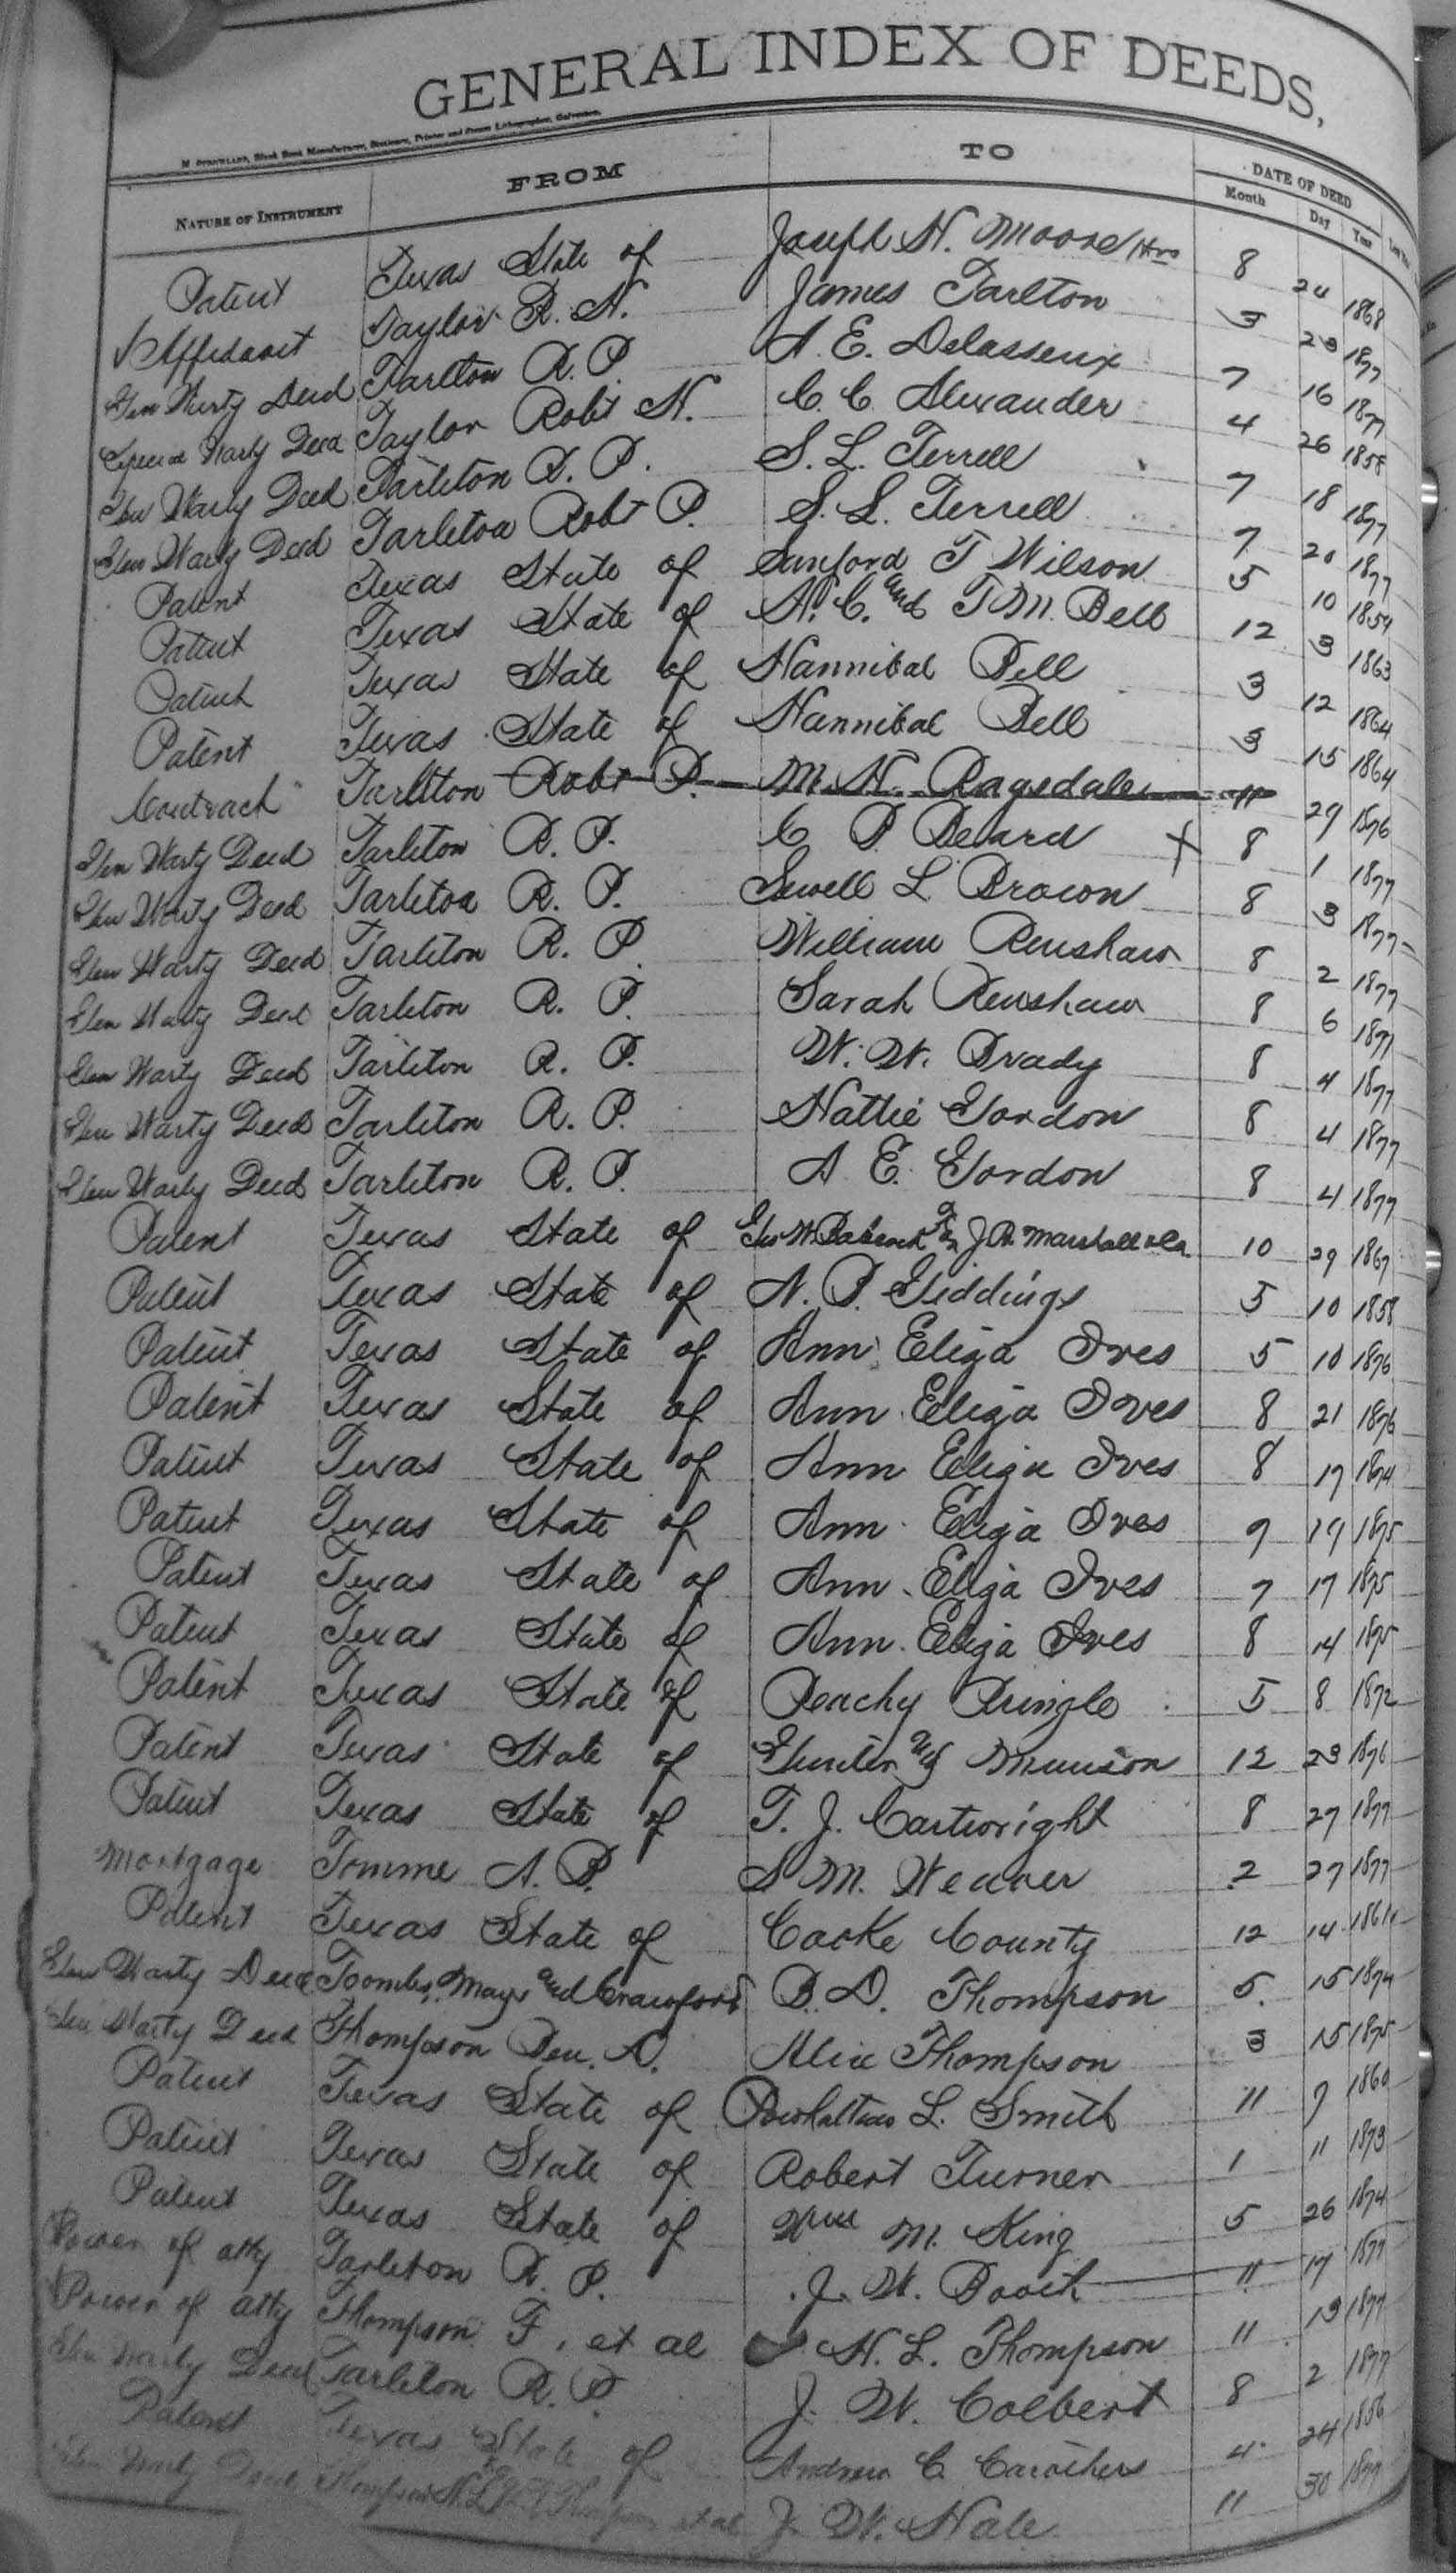 GENERAL INDEX OF DEEDS,
M STRICKLAND, Blank Book Manufacturer, Stationer, Printer and Steam Lithographer, Galveston.
NATURE OF INSTRUMENT FROM TO DATE OF DEED
Month Day Year
Patent Texas State of Joseph H. Moore Hrs 8 24 1868
Affidavit Taylor R. H. James Tarlton 3 23 1877
Gen Warty Deed Tarlton R. P. A. E. Delasseux 7 16 1877
Special Warty Deed Taylor Robt H. C. C. Alexander 4 26 1858
Gen Warty Deed Tarleton R. P. S. L. Terrell 7 18 1877
Gen Warty Deed Tarleton Robt P. S. L. Terrell 7 20 1877
Patent Texas State of Sanford T Wilson 5 10 1859
Patent Texas State of H. C. and T M. Bell 12 3 1863
Patent Texas State of Hannibal Bell 3 12 1864
Patent Texas State of Hannibal Bell 3 15 1864
Contract Tarleton Robt P. M. H. Ragsdale 11 29 1876
Gen Warty Deed Tarleton R. P. C P Beard X 8 1 1877
Gen Warty Deed Tarleton R. P. Sewell L Brown 8 3 1877
Gen Warty Deed Tarleton R. P. William Renshaw 8 2 1877
Gen Warty Deed Tarleton R. P. Sarah Renshaw 8 6 1877
Gen Warty Deed Tarleton R. P. W. W. Brady 8 4 1877
Gen Warty Deed Tarleton R. P. Hattie Gordon 8 4 1877
Gen Warty Deed Tarleton R. P. A. E. Gordon 8 4 1877
Patent Texas State of Geo W Babcock J. R. Marshall 10 29 1867
Patent Texas State of N. B. Giddings 5 10 1858
Patent Texas State of Ann Eliza Ives 5 10 1876
Patent Texas State of Ann Eliza Ives 8 21 1876
Patent Texas State of Ann Eliza Ives 8 17 1874
Patent Texas State of Ann Eliza Ives 9 19 1875
Patent Texas State of Ann Eliza Ives 7 17 1875
Patent Texas State of Ann Eliza Ives 8 14 1875
Patent Texas State of Peachy Pringle 5 8 1872
Patent Texas State of Gunter and Munson 12 23 1876
Patent Texas State of T. J. Cartwright 8 27 1877
Mortgage Tomme A. P. S M. Weaver 2 27 1877
Patent Texas State of Cooke County 12 14 1861
Gen Warty Deed Toombs, Mays and Crawford B. D. Thompson 5 15 1874
Gen Warty Deed Thompson Ben. D. Alice Thompson 3 15 1875
Patent Texas State of Powhattan L. Smith 11 9 1860
Patent Texas State of Robert Turner 1 11 1873
Patent Texas State of Wm M. King 5 26 1874
Power of atty Tarleton R. P. J. W. Booth 11 17 1877
Power of atty Thompson F. et al H. L. Thompson 11 13 1877
Gen Warty Deed Tarleton R. P. J. W. Colbert 8 2 1877
Patent Texas State of Andrew C. Carothers 4 24 1856
Gen Warty Deed Thompson H. L. Thompson et al J. W. Hale 11 30 1877